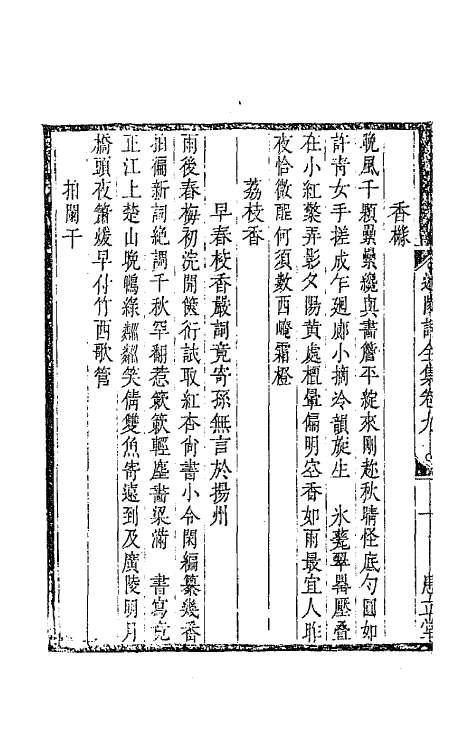 迦陵詞全集卷九 十 患立堂
香櫞
晩風千顆纍纍纔與畫簷平綻來剛趂秋晴怪底勻圓如
許青女手搓成乍廻廊小摘冷韻旋生 氷甆翠罌壓叠
在小紅檠弄影夕陽黃處檀暈偏明空香如雨最宜人昨
夜恰微酲何須數西崦霜橙
荔枝香
早春校香嚴詞竟寄孫無言於揚州
雨後春梅初浣開篋衍試取紅杏尚書小令閑編纂幾番
拍徧新詞絶調千秋罕翻惹簌簌輕塵畫梁滿 書寫竟
正江上楚山晩鴨綠粼粼笑倩雙魚寄遠到及廣陵明月
橋頭夜簫煖早付竹西歌管
拍闌干